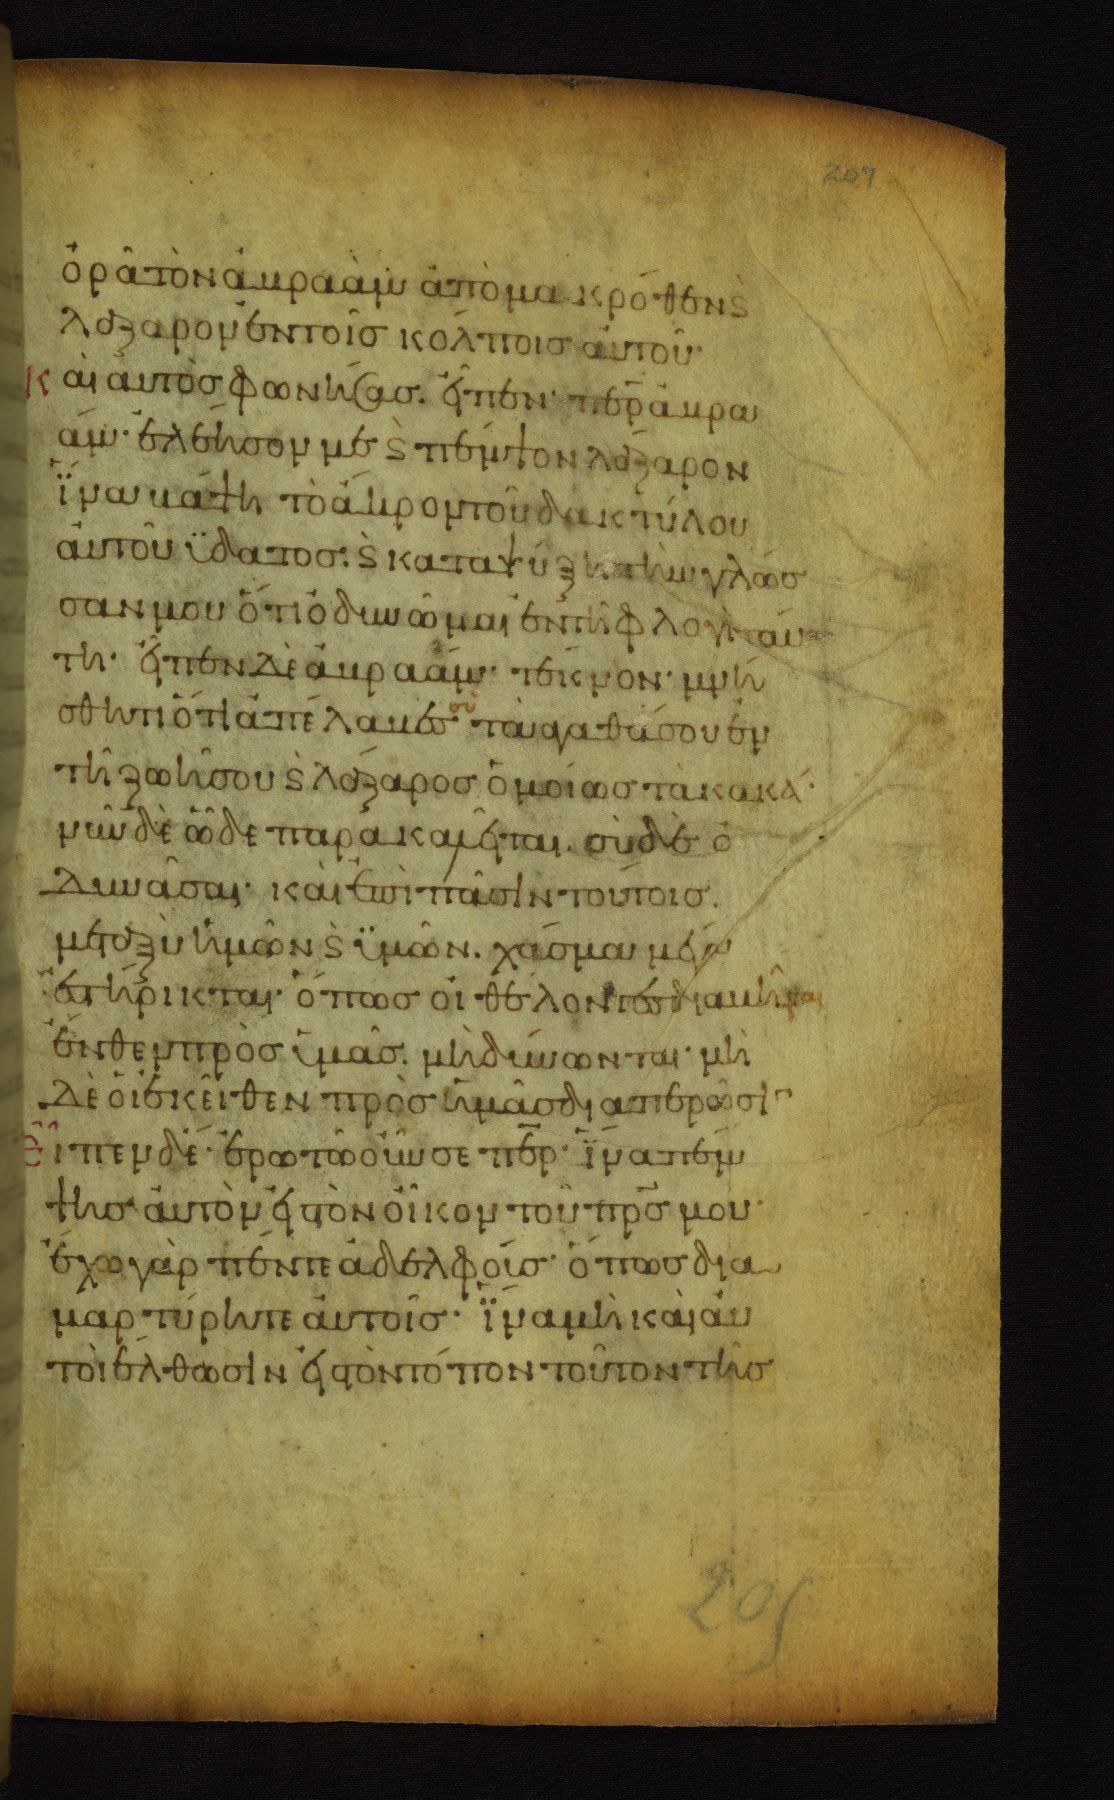 209
ὁρᾶ τὸν ἀβραὰμ ἀπὸ μακρόθεν ϗ
λάζαρον ἐν τοῖσ κόλποισ αὐτοῦ·
Καὶ αὐτὸσ φωνήσασ. εἶπεν· περ ἀβρα
άμ· ἐλέησον μὲ ϗ πέμψον λάζαρον
ἵνα βάψη τὸ ἄκρον τοῦ δακτύλου
αὐτοῦ ὕδατοσ· ϗ καταψύξη τὴν γλώσ
σαν μου ὅτι ὀδυνῶμαι ἐν τῆ φλογὶ ταύ
τη· εἶπεν δὲ ἀβραάμ· τέκνον· μνή
σθητι ὅτι ἀπέλαβέσ σὺ τὰ ἀγαθά σου ἐν
τῆ ζωῆ σου ϗ λάζαροσ ὁμοίωσ τὰ κακά·
νῦν δὲ ὧδε παρακαλεῖται. σὺ δὲ ὀ
δυνᾶσαι· καὶ ἐπὶ πᾶσιν τούτοισ.
μεταξὺ ἡμῶν ϗ ὑμῶν. χάσμα μέγα
ἐστήρικται· ὅπωσ οἱ θέλοντεσ διαβῆναι
ἔνθεν πρὸσ ὑμᾶσ. μὴ δύνωνται· μὴ
δὲ οἱ ἐκεῖθεν πρὸσ ἡμᾶσ διαπερῶσιν
Εἶπεν δέ· ἐρωτῶ οὖν σε περ· ἵνα πέμ
ψησ αὐτὸν εἰσ τὸν οἶκον τοῦ πρσ μου·
ἔχω γὰρ πέντε ἀδελφούσ· ὅπωσ δια
μαρτύρηται αὐτοῖσ· ἵνα μὴ καὶ αὐ
τοὶ ἔλθωσιν εἰσ τὸν τόπον τοῦτον τῆσ
205